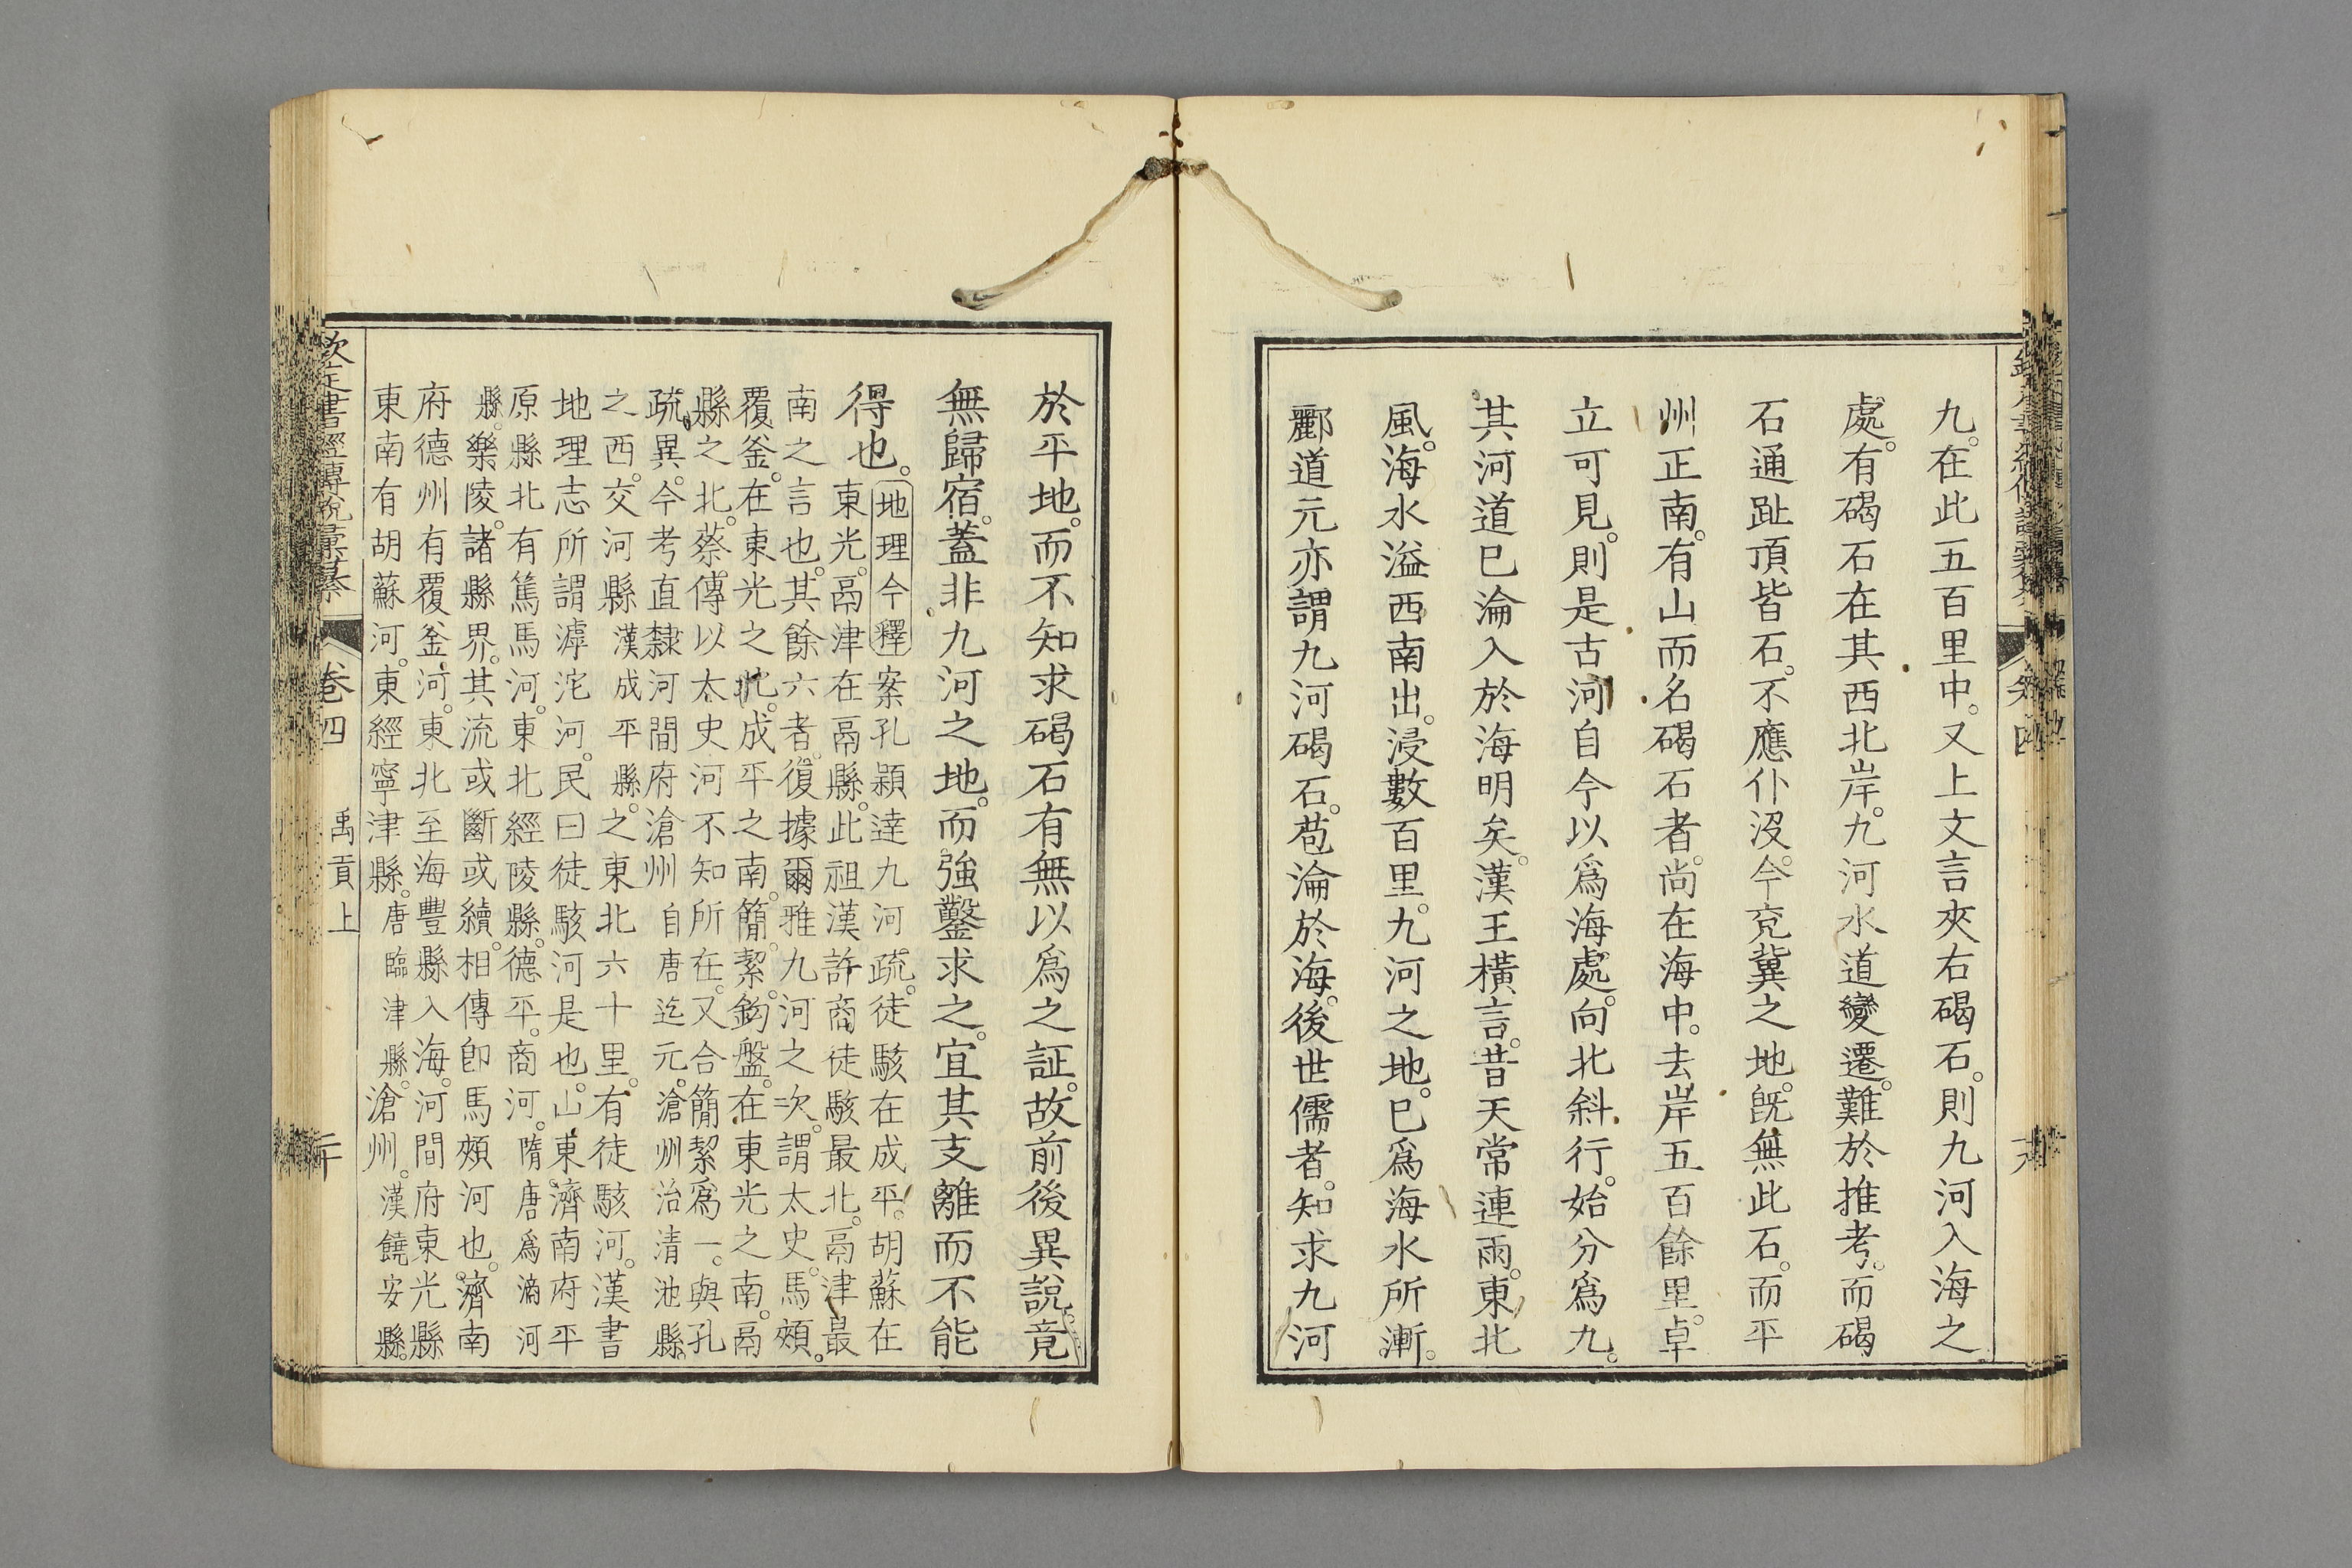 九。在此五百里中。又上文言夾右碣石。則九河入海之
處。有碣石在其西北岸。九河水道變遷。難於推考。而碣
石通趾頂皆石。不應仆沒。今兗冀之地。旣無此石。而平
州正南。有山而名碣石者。尚在海中。去岸五百餘里。卓
立可見。則是古河自今以爲海處。向北斜行。始分爲九。
其河道已淪入於海明矣。漢王橫言。昔天常連雨。東北
風。海水溢西南出。浸數百里。九河之地。已爲海水所漸。
酈道元亦謂九河碣石。苞淪於海。後世儒者。知求九河
於平地。而不知求碣石有無以爲之証。故前後異說竟
無歸宿。蓋非九河之地。而強鑿求之。宜其支離而不能
得也。
地理今釋 案孔穎達九河疏。徒駭在成平。胡蘇在
東光。鬲津在鬲縣。此祖漢許商徒駭最北。鬲津最
南之言也。其餘六者。復據爾雅九河之次。謂太史。馬頰。
覆釜。在東光之北。成平之南。簡。絜。鉤盤。在東光之南。鬲
縣之北。蔡傳以太史河不知所在。又合簡絜爲一。與孔
疏異。今考直隸河間府滄州自唐迄元。滄州治清池縣。
之西。交河縣漢成平縣。之東北六十里。有徒駭河。漢書
地理志所謂滹沱河。民曰徒駭河是也。山東濟南府平
原縣北有篤馬河。東北經陵縣。德平。商河。隋唐爲滴河
縣。樂陵。諸縣界。其流或斷或續。相傳卽馬頰河也。濟南
府德州有覆釜河。東北至海豐縣入海。河間府東光縣
東南有胡蘇河。東經寧津縣。唐臨津縣。滄州。漢饒安縣。
欽定書經傳說彙纂 卷四 禹貢上 二十